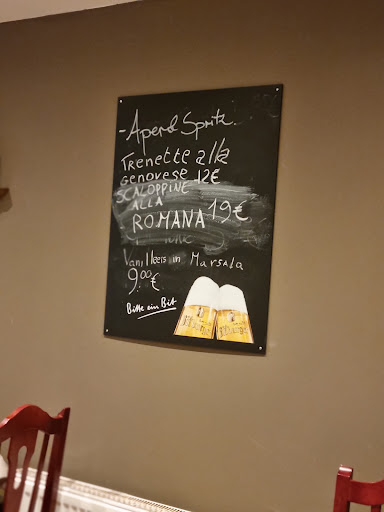 - Aperol Spritz
Trenette alla
GENOVESE 12€
SCALOPPINE
ALLA
ROMANA 19€
Vanilleeis in Marsala
9.00 €
Bitte ein Bit